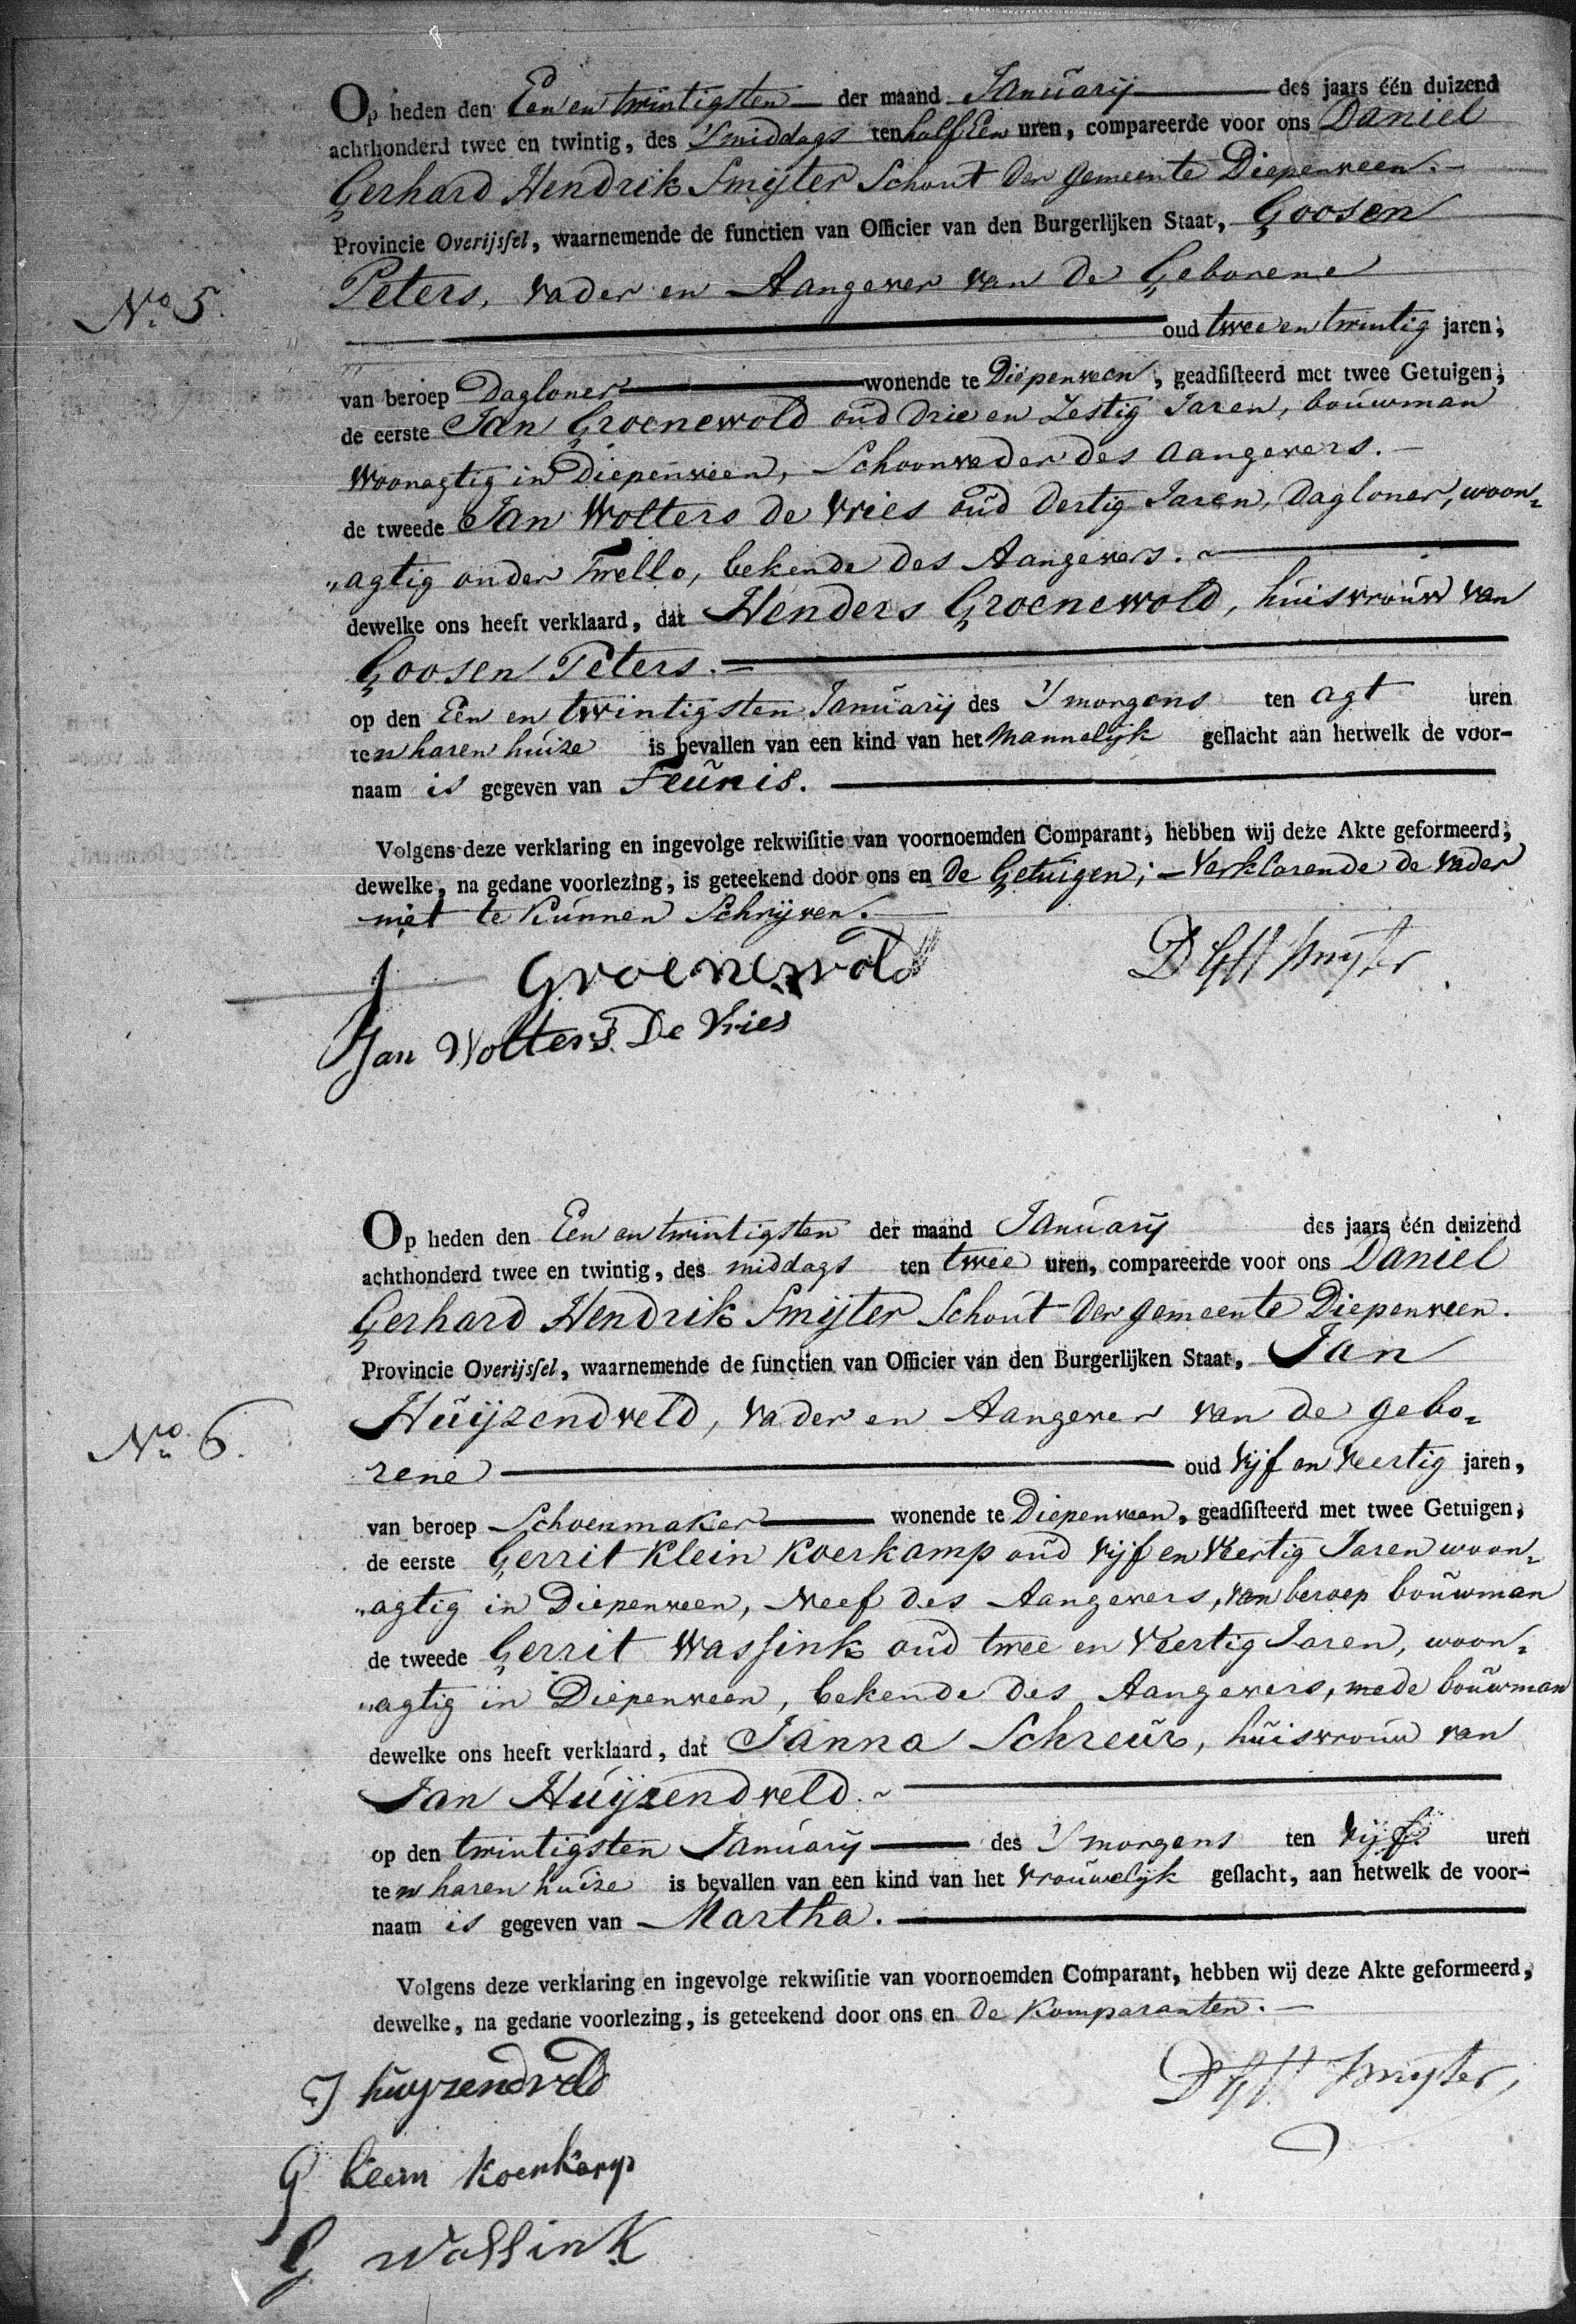 Op heden den Een en twintigsten der maand Januarij des jaars één duizend
achthonderd twee en twintig, des 's middags ten half Een uren, compareerde voor ons Daniel
Gerhard Hendrik Smijter Schout der gemeente Diepenveen.
Provincie Overijssel, waarnemende de functien van Officier van den Burgerlijken Staat, Goosen
Peters, vader en Aangever van de Geborene
No 5.
oud twee en twintig jaren,
van beroep Dagloner wonende te Diepenveen, geadsisteerd met twee Getuigen,
de eerste Jan Groenewold oud drie en Zestig Jaren, bouwman
Woonagtig in Diepenveen, Schoonvader des aangevers.
de tweede Jan Wolters de Vries oud dertig Jaren, Dagloner, woon-
„agtig onder Twello, bekende des Aangevers.
dewelke ons heeft verklaard, dat Henders Groenewold, huisvrouw van
Goosen Peters.
op den Een en twintigsten Januarij des 's morgens ten agt uren
ten haren huize is bevallen van een kind van het Mannelijk geslacht aan hetwelk de voor-
naam is gegeven van Teunis.
Volgens deze verklaring en ingevolge rekwisitie van voornoemden Comparant, hebben wij deze Akte geformeerd,
dewelke, na gedane voorlezing, is geteekend door ons en de Getuigen; Verklarende de vader
niet te kunnen Schrijven.
J Groenewold
DGH Smijter
Jan Wolters De Vries
Op heden den Een en twintigsten der maand Januarij des jaars één duizend
achthonderd twee en twintig, des middags ten twee uren, compareerde voor ons Daniel
Gerhard Hendrik Smijter Schout der gemeente Diepenveen.
Provincie Overijssel, waarnemende de functien van Officier van den Burgerlijken Staat, Jan
Huijzendveld, vader en Aangever van de gebo-
No 6.
rene oud vijf en veertig jaren,
van beroep Schoenmaker wonende te Diepenveen, geadsisteerd met twee Getuigen,
de eerste Gerrit Klein Koerkamp oud vijf en Veertig Jaren woon-
„agtig in Diepenveen, Neef des Aangevers, van beroep bouwman
de tweede Gerrit Wassink oud twee en Veertig Jaren, woon-
„agtig in Diepenveen, bekende des Aangevers, mede bouwman
dewelke ons heeft verklaard, dat Janna Schreurs, huisvrouw van
Jan Huijzendveld.
op den twintigsten Januarij des 's morgens ten vijf uren
ten haren huize is bevallen van een kind van het vrouwelijk geslacht, aan hetwelk de voor-
naam is gegeven van Martha.
Volgens deze verklaring en ingevolge rekwisitie van voornoemden Comparant, hebben wij deze Akte geformeerd,
dewelke, na gedane voorlezing, is geteekend door ons en de Komparanten.
J huyzendveld
DGH Smijter,
G klein Koerkamp
G Wassink